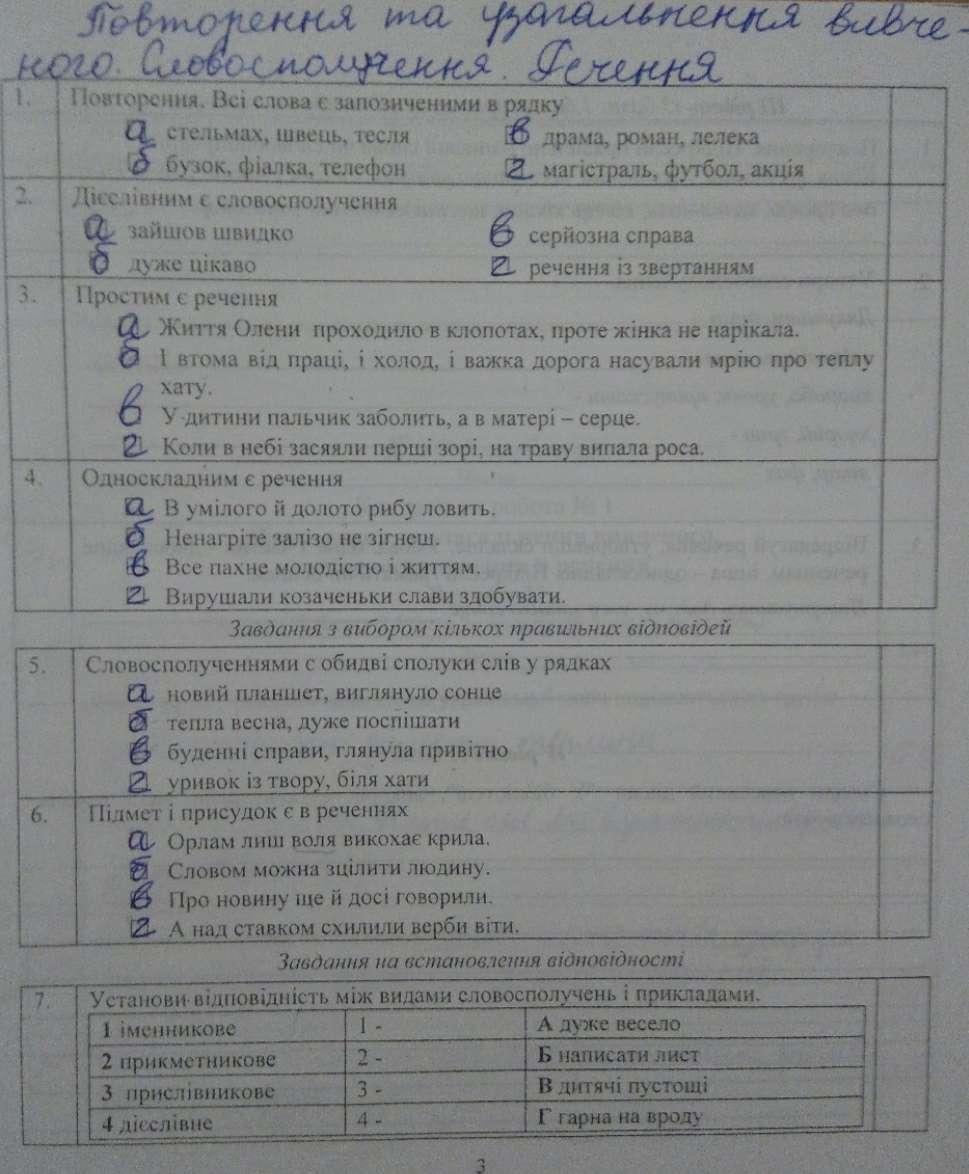 Повторення та узагальнення вивче-
ного. Словосполучення. Речення
1. Повторення. Всі слова є запозиченими в рядку
а стельмах, швець, тесля в драма, роман, лелека
б бузок, фіалка, телефон г магістраль, футбол, акція
2. Дієслівним є словосполучення
а зайшов швидко в серйозна справа
б дуже цікаво г речення із звертанням
3. Простим є речення
а Життя Олени проходило в клопотах, проте жінка не нарікала.
б І втома від праці, і холод, і важка дорога насували мрію про теплу
хату.
в У дитини пальчик заболить, а в матері – серце.
г Коли в небі засяяли перші зорі, на траву випала роса.
4. Односкладним є речення
а В умілого й долото рибу ловить.
б Ненагріте залізо не зігнеш.
в Все пахне молодістю і життям.
г Вирушали козаченьки слави здобувати.
Завдання з вибором кількох правильних відповідей
5. Словосполученнями є обидві сполуки слів у рядках
а новий планшет, виглянуло сонце
б тепла весна, дуже поспішати
в буденні справи, глянула привітно
г уривок із твору, біля хати
6. Підмет і присудок є в реченнях
а Орлам лиш воля викохає крила.
б Словом можна зцілити людину.
в Про новину ще й досі говорили.
г А над ставком схилили верби віти.
Завдання на встановлення відповідності
7. Установи відповідність між видами словосполучень і прикладами.
1 іменникове 1 - А дуже весело
2 прикметникове 2 - Б написати лист
3 прислівникове 3 - В дитячі пустощі
4 дієслівне 4 - Г гарна на вроду
3